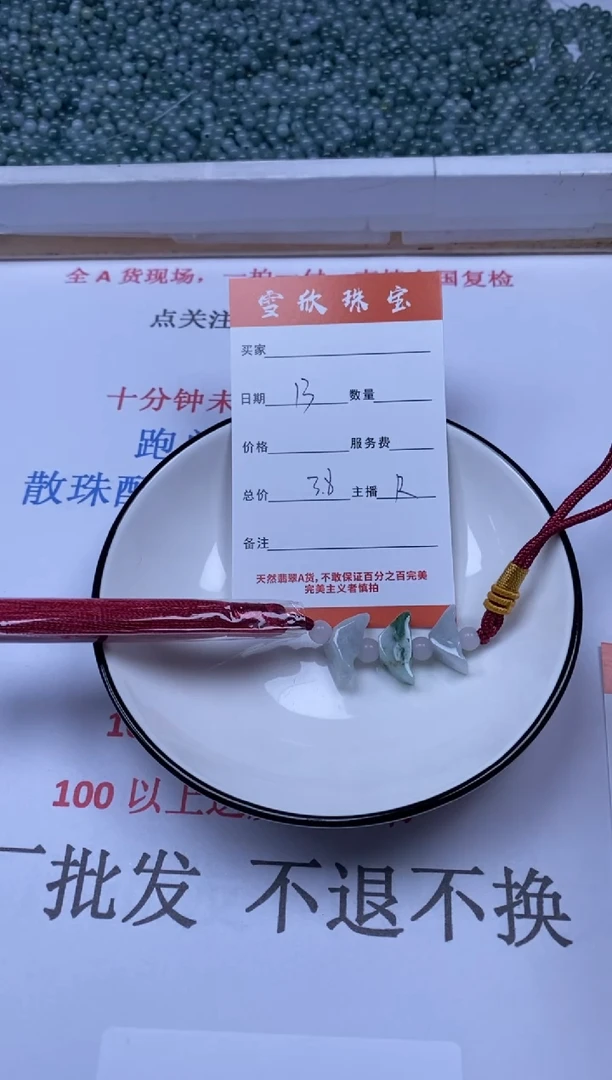 全A货现场，一拍一付，支持全国复检
点关注
十分钟未
跑
散珠配
雪欣珠宝
买家
日期 13 数量
价格 服务费
总价 38 主播 R
备注
天然翡翠A货，不敢保证百分之百完美
完美主义者慎拍
100 以上
批发 不退不换